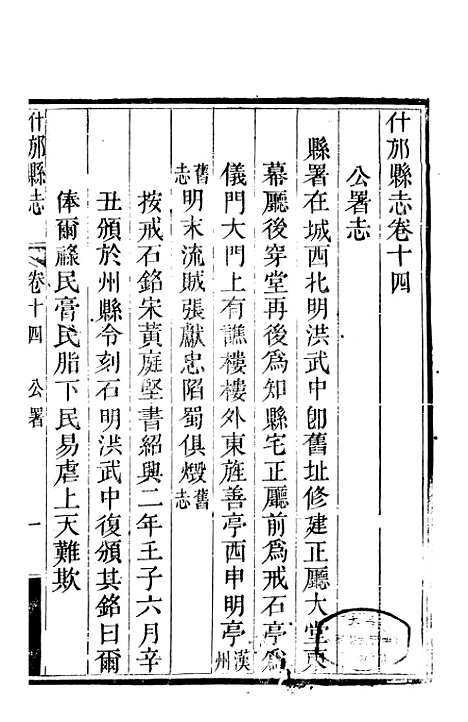 什邡縣志卷十四
公署志
縣署在城西北明洪武中卽舊址修建正廳大堂東
幕廳後穿堂再後爲知縣宅正廳前爲戒石亭爲
儀門大門上有譙樓樓外東旌善亭西申明亭漢州
舊志明末流賊張獻忠陷蜀俱燬舊志
按戒石銘宋黃庭堅書紹興二年壬子六月辛
丑頒於州縣令刻石明洪武中復頒其銘曰爾
俸爾祿民膏民脂下民易虐上天難欺
什邡縣志
卷十四 公署
一